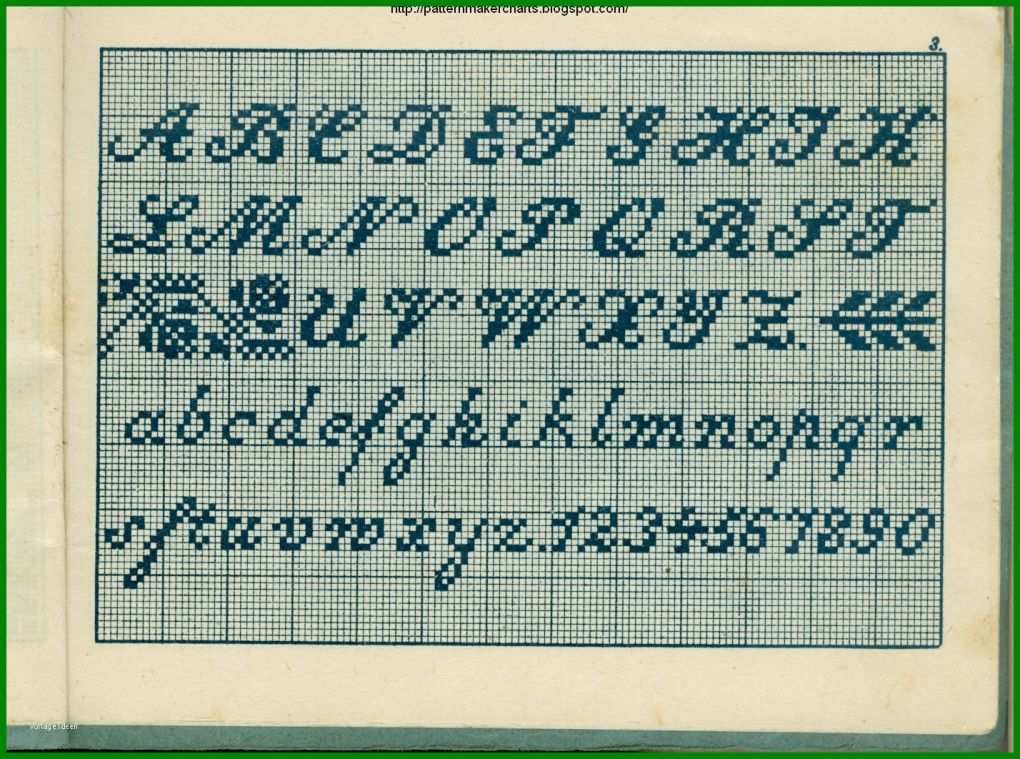 http://patternmakercharts.blogspot.com/
3.
A B C D E F G H I K
L M N O P Q R S T
U V W X Y Z.
a b c d e f g h i k l m n o p q r
s ſ t u v w x y z. 1 2 3 4 5 6 7 8 9 0
vorlage ideen